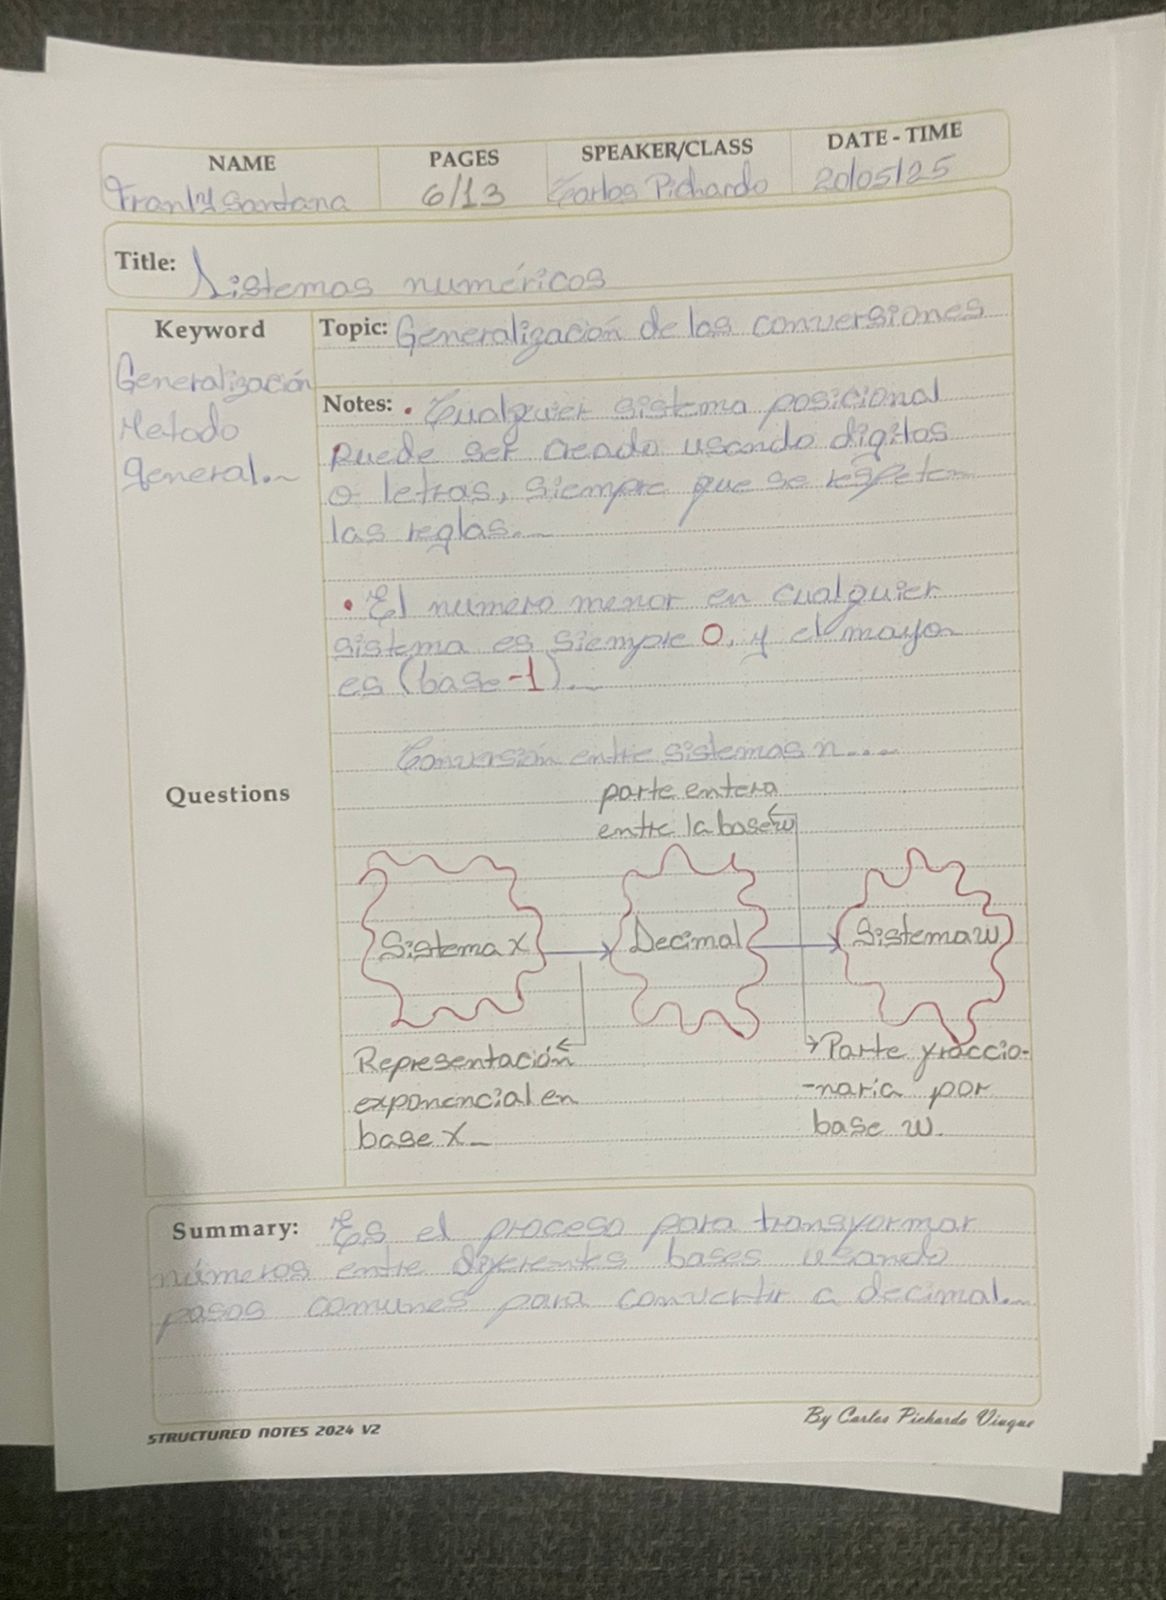 NAME PAGES SPEAKER/CLASS DATE - TIME
Franly Santana 6/13 Carlos Pichardo 20/05/25
Title: Sistemas numéricos
Keyword
Generalización
Metodo
general.
Topic: Generalización de las conversiones
Notes: • Cualquier sistema posicional
puede ser creado usando digitos
o letras, siempre que se respeten
las reglas.
• El numero menor en cualquier
sistema es siempre 0, y el mayor
es (base -1).
Conversión entre sistemas n....
Questions
parte entera
entre la base w
Sistema X
Decimal
Sistema W
Representación
exponencial en
base X
Parte fraccio-
-naria por
base w.
Summary: Es el proceso para transformar
números entre diferentes bases usando
pasos comunes para convertir a decimal.
STRUCTURED NOTES 2024 V2
By Carlos Pichardo Viuque